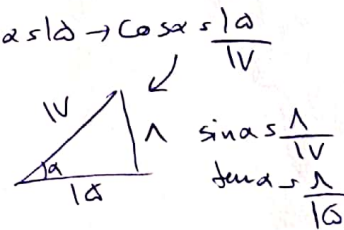 α = ۱۵ → Cosα = ۱۵/۱۷
۱۷
۸
α
۱۵
sinα = ۸/۱۷
tanα = ۸/۱۵